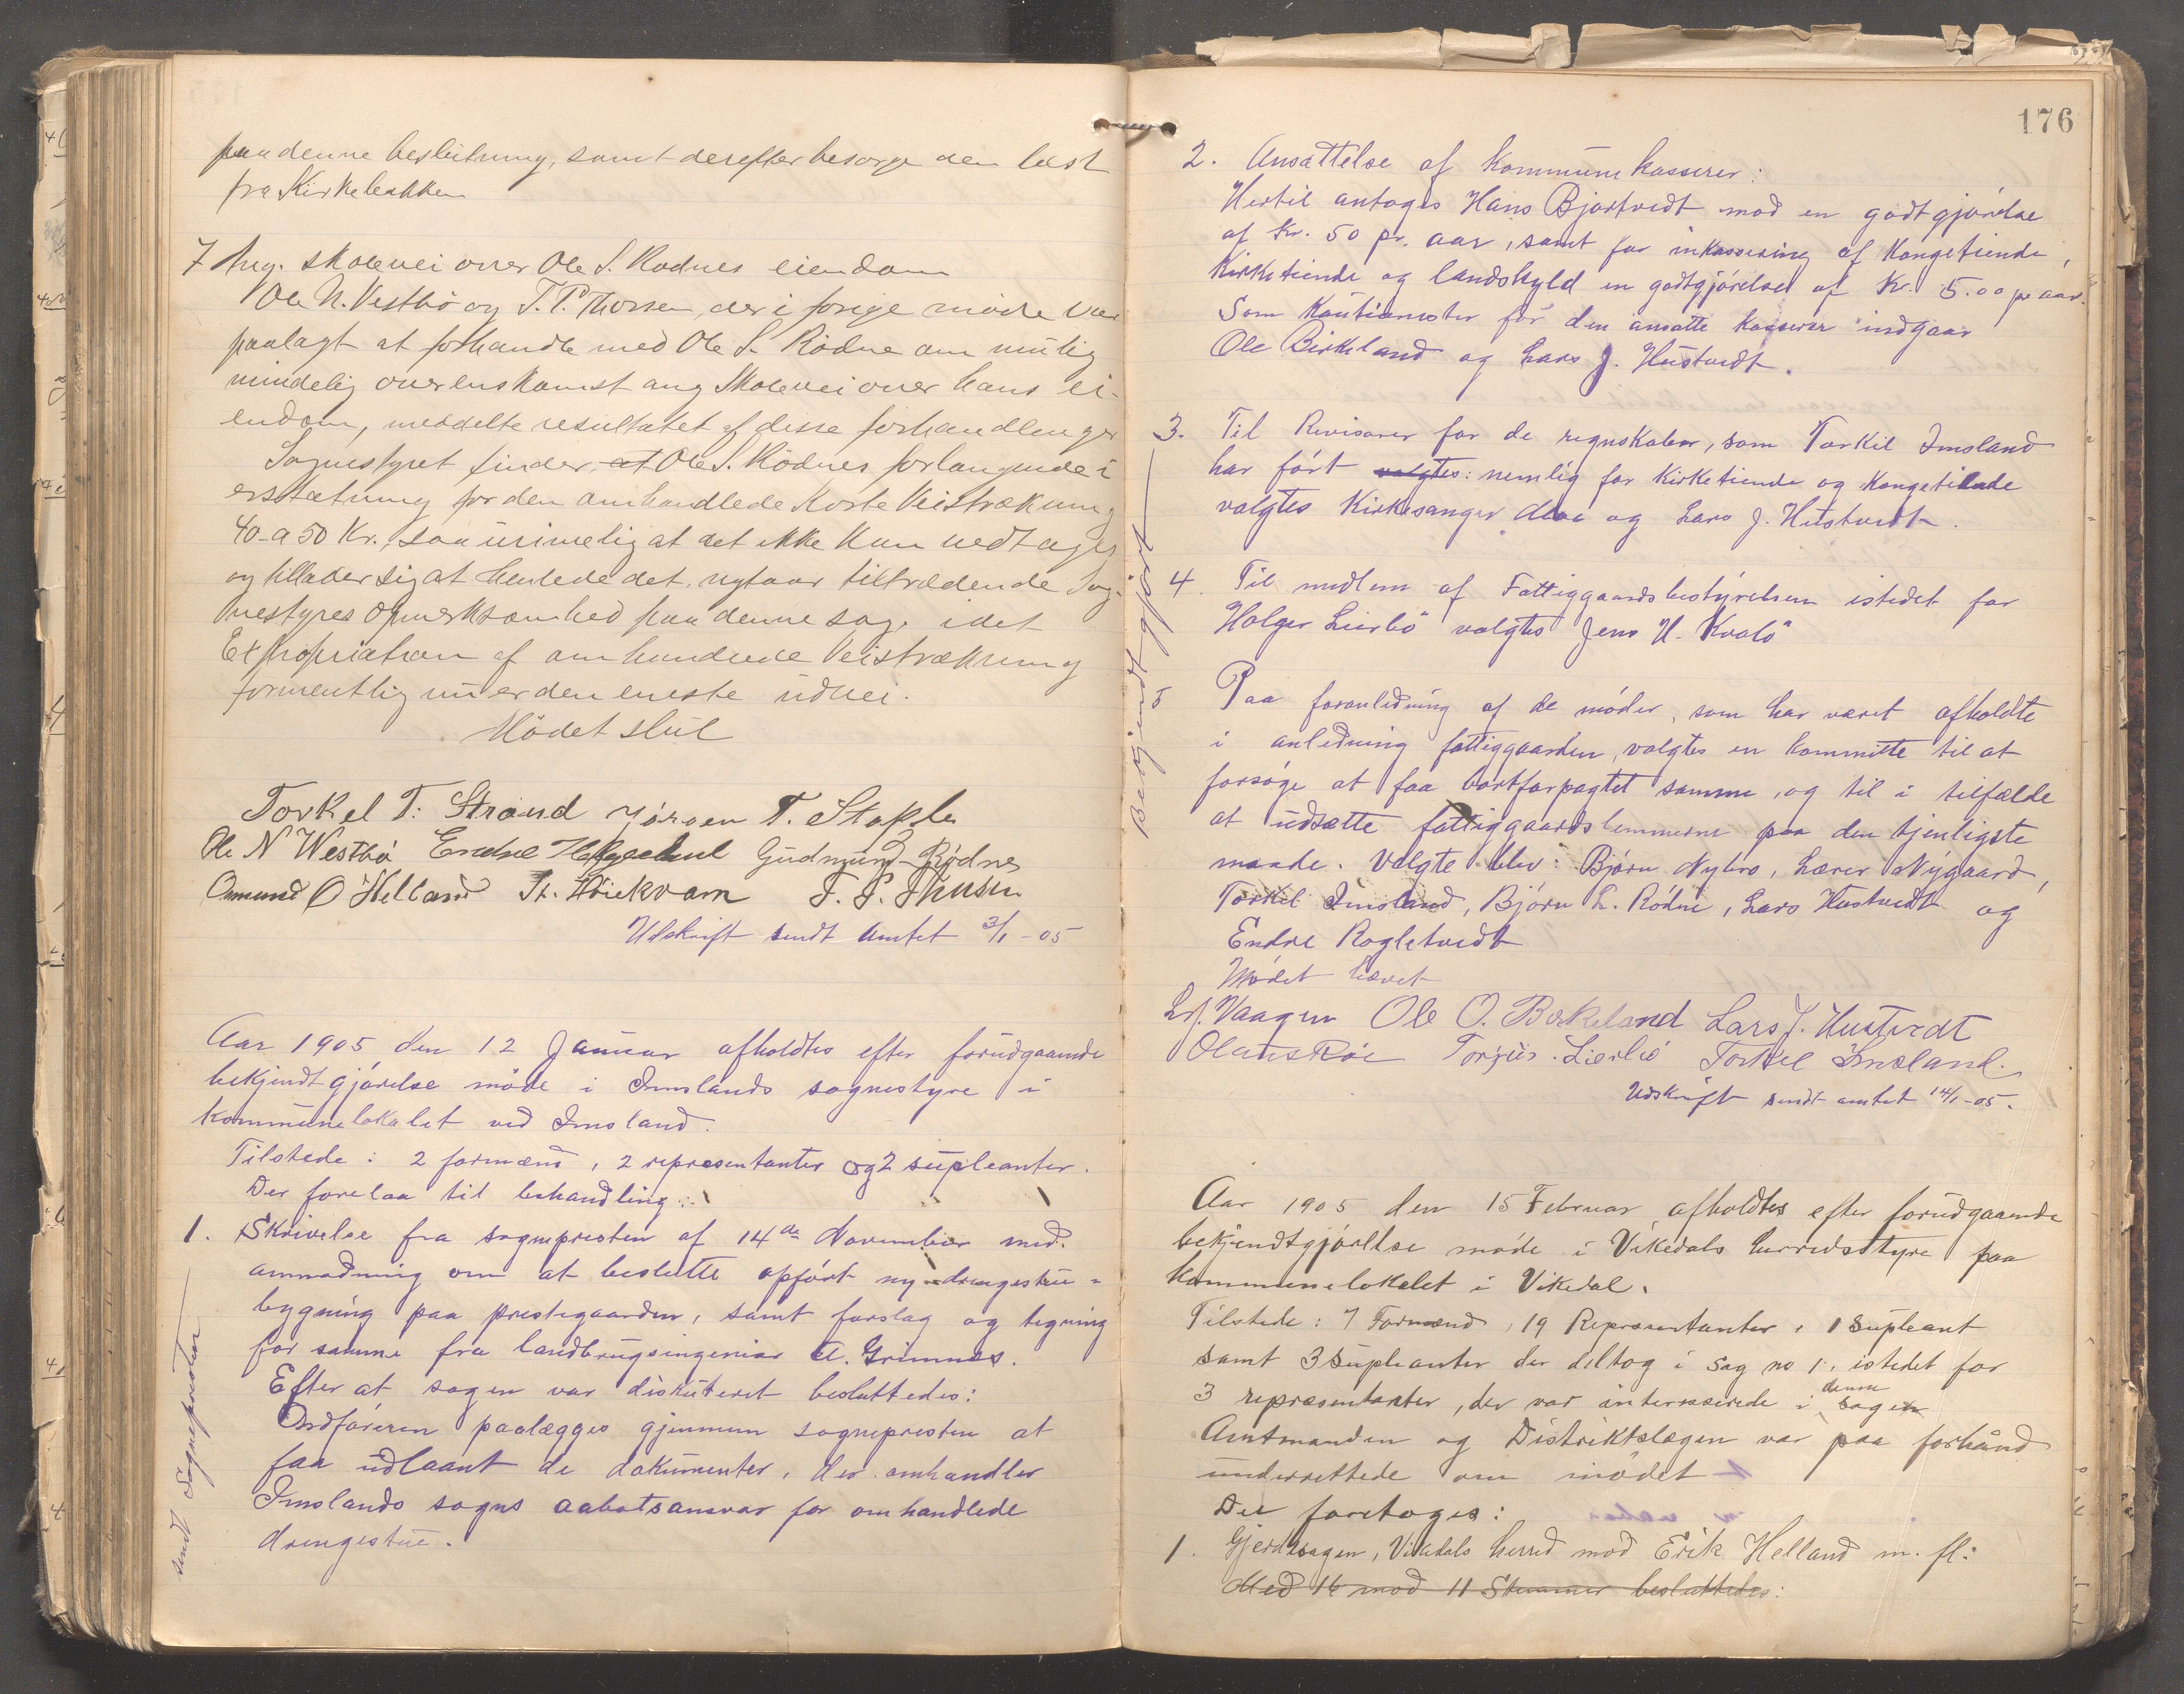 paa denne beslutning, samt derefter besørge den læst
fra Kirkebakken
7 Ang. skolevei over Ole S. Rødnes eiendom
Ole N. Vestbø og T. P. Thorsen, der i forige møde var
paalagt at forhandle med Ole S. Rødne om mulig
mindelig overenskomst ang Skolevei over hans ei-
endom, meddelte resultatet af disse forhandlinger
Sognestyret finder at Ole S. Rødnes forlangende i
erstatning for den omhandlede korte Veistrækning
40 a 50 Kr., saa urimelig at det ikke kan vedtages
og tillader sig at henlede det nytaar tiltrædende Sog-
nestyres opmerksomhed paa denne sag, idet
Expropriation af omhandlede Veistrækning
formentlig nu er den eneste udvei.
Mødet slut
Torkel T. Strand Jørgen T. Stople
Ole N Westbø Endre Gudmund Rødne
Ommund O Helland St. Høiekvam
Udskrift sendt Amtet 3/1-05
Aar 1905 den 12 Januar afholdtes efter forudgaaende
bekjendtgjørelse møde i Imslands sognestyre i
kommunelokalet ved Imsland.
Tilstede: 2 formænd, 2 repræsentanter og 2 supleanter.
Der forelaa til behandling:
1. Skrivelse fra sognepresten af 14de November med
anmodning om at beslutte opført ny drengestue-
bygning paa prestegaarden, samt forslag og tegning
for samme fra landbrugsingeniør A. Grimnes.
Efter at sagen var diskuteret besluttedes:
Ordføreren paalægges gjennem sognepresten at
faa udlaant de dokumenter, der omhandler
Imslands sogns aabotsansvar for omhandlede
drengestue.
sendt Sognepresten
176
2. Ansættelse af kommunekasserer:
Hertil antoges Hans Bjortvedt mod en godtgjørelse
af kr. 50 pr. aar, samt for inkassering af Kongetiende,
Kirketiende og landskyld en godtgjørelse af Kr. 5.00 pr aar.
Som Kautionister for den ansatte kasserer indgaar
Ole Birkeland og Lars J. Hustvedt.
3. Til Revisorer for de regnskaber, som Torkil Imsland
har ført valgtes: nemlig for Kirketiende og Kongetiende
valgtes Kirkesanger og Lars J. Hustvedt.
4. Til medlem af Fattiggaardsbestyrelsen istedet for
Holger Lierbø valgtes Jens H. Kvalø
5 Paa foranledning af de møder, som har været afholdte
i anledning fattiggaarden, valgtes en kommitte til at
forsøge at faa bortforpagtet samme, og til i tilfælde
at udsætte fattiggaardslemmerne paa den tjenligste
maade. Valgte blev: Bjørn Nybro, Lærer Nygaard,
Torkil Imsland, Bjørn L. Rødne, Lars Hustvedt og
Endre Rogletvedt
Mødet hævet
Bekjendtgjort
L. J. Vaagen Ole O. Birkeland Lars J. Hustvedt
Ola Torger Lierbø Torkel Imsland.
Udskrift sendt amtet 14/1-05.
Aar 1905 den 15 Februar afholdtes efter forudgaaende
bekjendtgjørelse møde i Vikedals herredsstyre paa
kommunelokalet i Vikedal.
Tilstede: 7 Formænd, 19 Repræsentanter, 1 Supleant
samt 3 supleanter der deltog i sag no 1, istedet for
3 repræsentanter, der var interesserede i denne sagen
Amtmanden og Distriktslægen var paa forhånd
underrettede om mødet
Der foretoges:
1. Gjerdesagen, Vikedals herred mod Erik Helland m. fl:
Med 16 mod 11 Stemmer besluttedes: